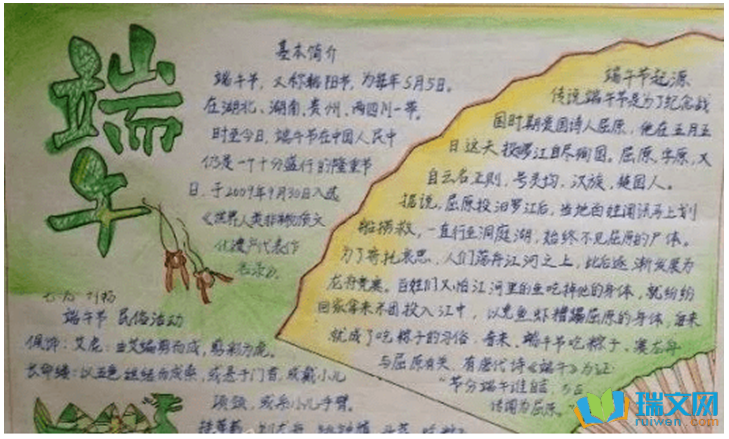 端午
基本简介
端午节，又称端阳节，为每年5月5日。
在湖北、湖南、贵州、两四川一带。
时至今日，端午节在中国人民中
仍是一个十分盛行的隆重节
日，于2009年9月30日入选
《世界人类非物质文
化遗产代表作
名录》。
端午节 民俗活动
佩饰：艾虎：由艾编剪而成，剪彩为虎。
长命缕：以五色丝结而成索，或悬于门首，或戴小儿
项颈，或系小儿手臂。
端午节起源
传说端午节是为了纪念战
国时期爱国诗人屈原，他在五月五
日这天投汨江自尽殉国。屈原，字原，又
自云名正则，号灵均，汉族，楚国人。
据说，屈原投汨罗江后，当地百姓闻讯马上划
船捞救，一直行至洞庭湖，始终不见屈原的尸体。
为了寄托哀思，人们荡舟江河之上，此后逐渐发展为
龙舟竞赛。百姓们又怕江河里的鱼吃掉他的身体，就纷纷
回家拿来米团投入江中，以免鱼虾糟蹋屈原的身体，后来
就成了吃粽子的习俗。看来，端午节吃粽子、赛龙舟
与屈原有关，有唐代诗《端午》为证：
"节分端午谁言，万古
传闻为屈原。
瑞文网
ruiwen.com